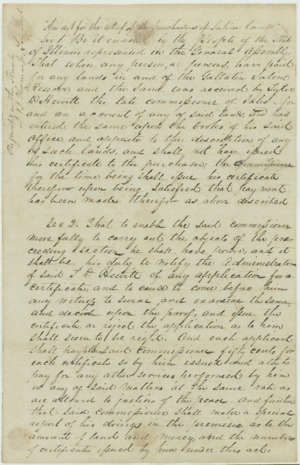 An act for the relief of the purchasers of Saline Lands
Sec 1 Be it enacted by the People of the State
of Illinois represented in the General Assembly
That when any person, or persons, have paid
for any lands in and of the Gallatin Saline
Reserve and the same was received by
Hewitt the late commissioner of Sales, for
and on account of any of said lands, and has
entered the same upon the books of his said
office and opposite to the description of any
of such lands, and shall not have issued
his certificate to the purchaser, the Commissioner
for the time being shall issue his certificate
therefor upon being satisfied that payment
has been made therefor as above described
Sec 2. That to enable the said commissioner
more fully to carry out the objects of the pre
ceding section he shall have power, and it
shall be his duty to notify the Administrators
of said Hewitt of any application for a
certificate, and to cause to come before him
any witness to swear and examine the same,
and decide upon the proof, and issue the
certificate or reject the application as to him
shall seem to be right. And each applicant
shall pay the said Commissioner fifty cents for
each certificate so by him issued and the
pay for any other services performed by him
in any of said matters at the same rate as
are allowed to justices of the peace. And further
that said commissioner shall make a special
report of his doings in the premises as to the
amount of land and money, and the number
of certificates issued by him under this act